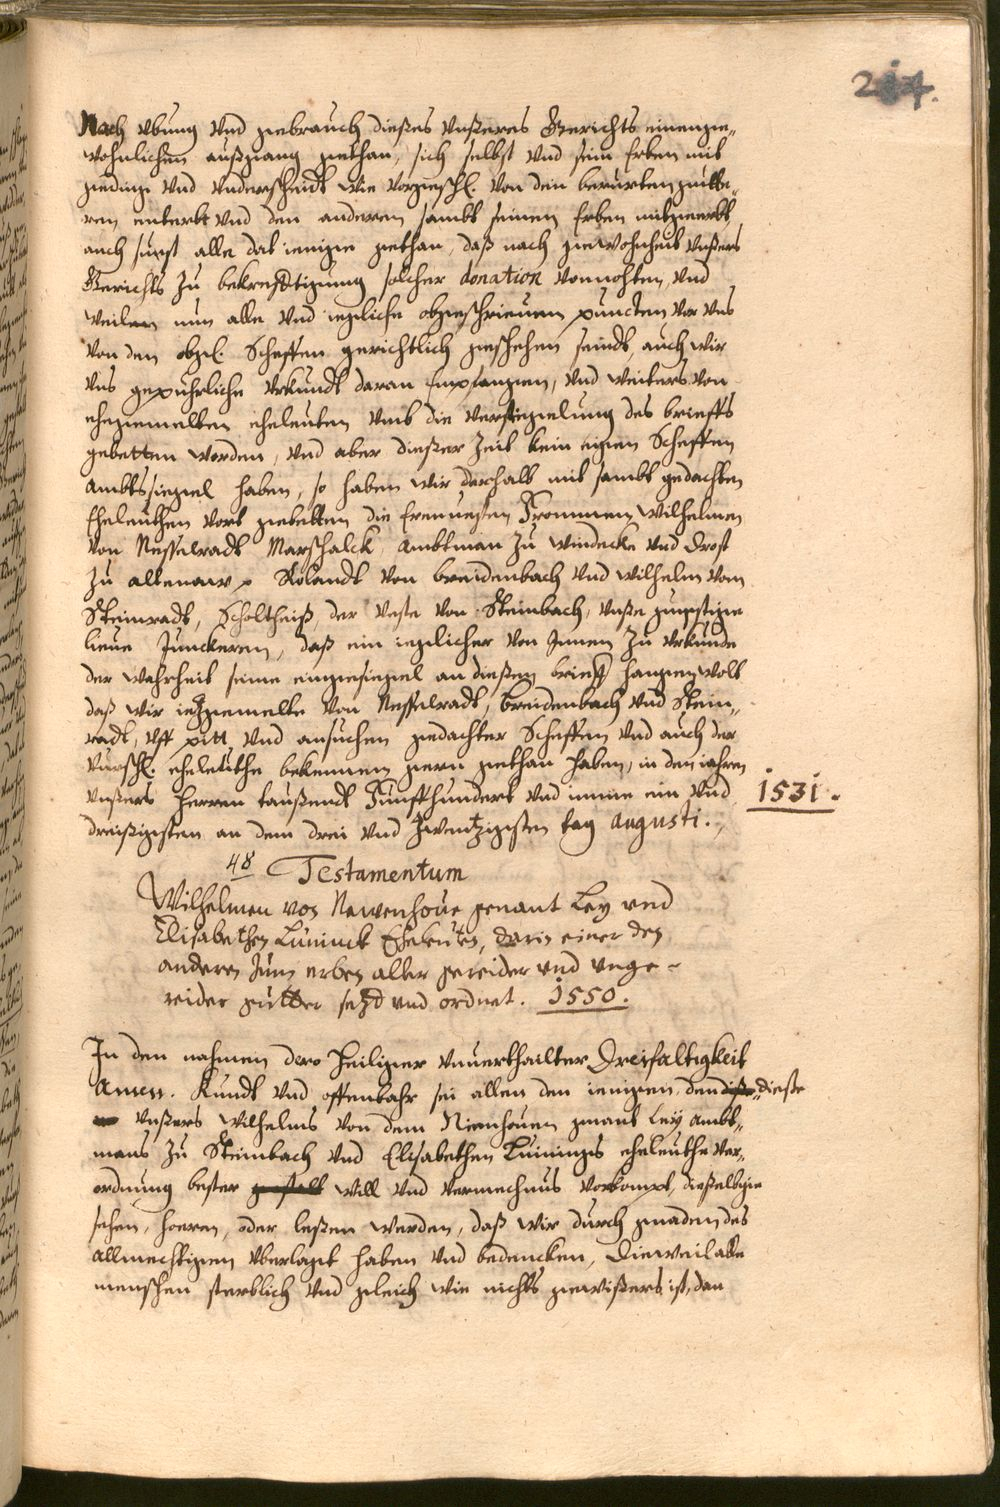 214.
Nach ubung und gebrauch dießes unßeres Gerichts einen ge„
wohnlichen außgang gethan, sich selbst und sein Erben mit
gedinge und underscheidt wie vorgeschl. von den berurten gütte„
ren enterbt und den anderen sambt seinen Erben mitgeerbt
auch sunst alle dat ienige gethan, daß nach gewohnheit unßers
Gerichts zu bekrefftigung solcher donation vonnohten, und
weilen nun alle und iegliche obgeschrieuen puncten vor uns
von den obgl. Scheffen gerichtlich geschehen seindt, auch wir
uns gepuhrliche urkundt daran empfangen, und weiters von
ehegemelten eheleuten umb die versiegelung des brieffs
gebetten worden, und aber dießer zeit kein eigen Scheffen
ambtssiegel haben, so haben wir derhalb mit sambt gedachten
Eheleuthen vort gebetten die Erenuesten Frommen Wilhelmen
von Nesselradt Marschalck, Ambtman zu Windecke und Drost
zu altenaw, Rolandt von breidenbach und Wilhelm vom
Steinradt, Scholtheiß der veste von Steinbach, unße gunstige
lieue Junckeren, daß ein ieglicher von Jnnen zu urkunde
der wahrheit seine eingesiegel an dießen brieff hangen wolt
daß wir ietzgemelte von Nesselradt, breidenbach und Stein„
radt, uff pitt und ansuchen gedachter Scheffen und auch der
vurschl. eheleuthe bekennen gern gethan haben, in den iahren
unßers Herren taußendt Funffhundert und imme ein und 1531.
dreißigsten an dem drei und zwentzigsten tag Augusti.
48 Testamentum
Wilhelmen von Newenhoue genant Ley und
Elisabethen Lüninck Eheleuten, darin einer den
anderen zum erben aller gereider und unge-
reider gütter setzd und ordnet. 1550.
In den nahmen dero Heiliger unuerthailter Dreifaltigkeit
Amen. Kundt und offenbahr sei allen den ienigen, den dieße
unßers Wilhelms von dem Nienhouen gnant Ley Ambt„
mans zu Steinbach und Elisabethen Luninges eheleuthe ver„
ordnung bester will und vermechnus vorkompt, dieselbige
sehen, hoeren, oder leßen werden, daß wir durch gnaden des
allmechtigen uberlagt haben und bedencken, Dieweil alle
menschen sterblich und gleich wie nichts gewißers ist, dan